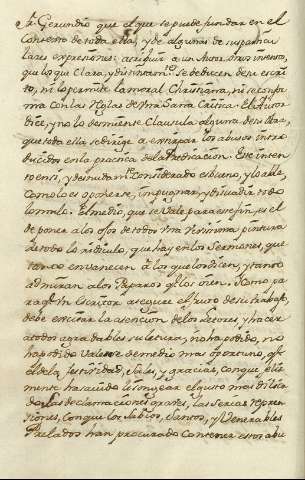 Fr. Gerundio que el que se puede fundar en el
Contexto de toda ella, y de algunas de sus particu
lares expresiones: atribuir a un Autor otros intentos,
que los que clara, y distintamte. se deducen de su escri
to, ni lo permite la moral Christiana, ni se confor
ma con las Reglas de una sana Critica. El Autor
dice, y no lo desmiente Clausula alguna de su obra,
que toda ella se dirige a extirpar los abusos intro
ducidos en la practica de la Predicacion. Este inten
to en si, y desnudamte. considerado es bueno, y loable,
como lo es oponerse, impugnar, y disuadir todo
lo malo. El medio, que se vale para este fin, es el
de poner a los ojos de todos una vivisima pintura
de todo lo ridiculo, que hay en los Sermones, que
tanto envanecen a los que los dicen, y tanto
admiran a los que los oien. Y como pa
ra qe. un Escritor asegure el fruto de su trabajo,
debe excitar la atencion de los Letores y hacer
a todos agradable su letura, no ha podido, no
ha podido valerse de medio mas oportuno, qe.
el de la festividad, sales, y gracias, con que
mente ha savido lisongear el gusto mas
de las declamaciones graves, las serias repren
siones, con que los Sabios, Santos, y Venerables
Prelados han procurado contener estos abu